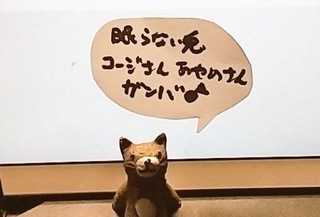 眠らない兎
コージさん あやめさん
ガンバ♪